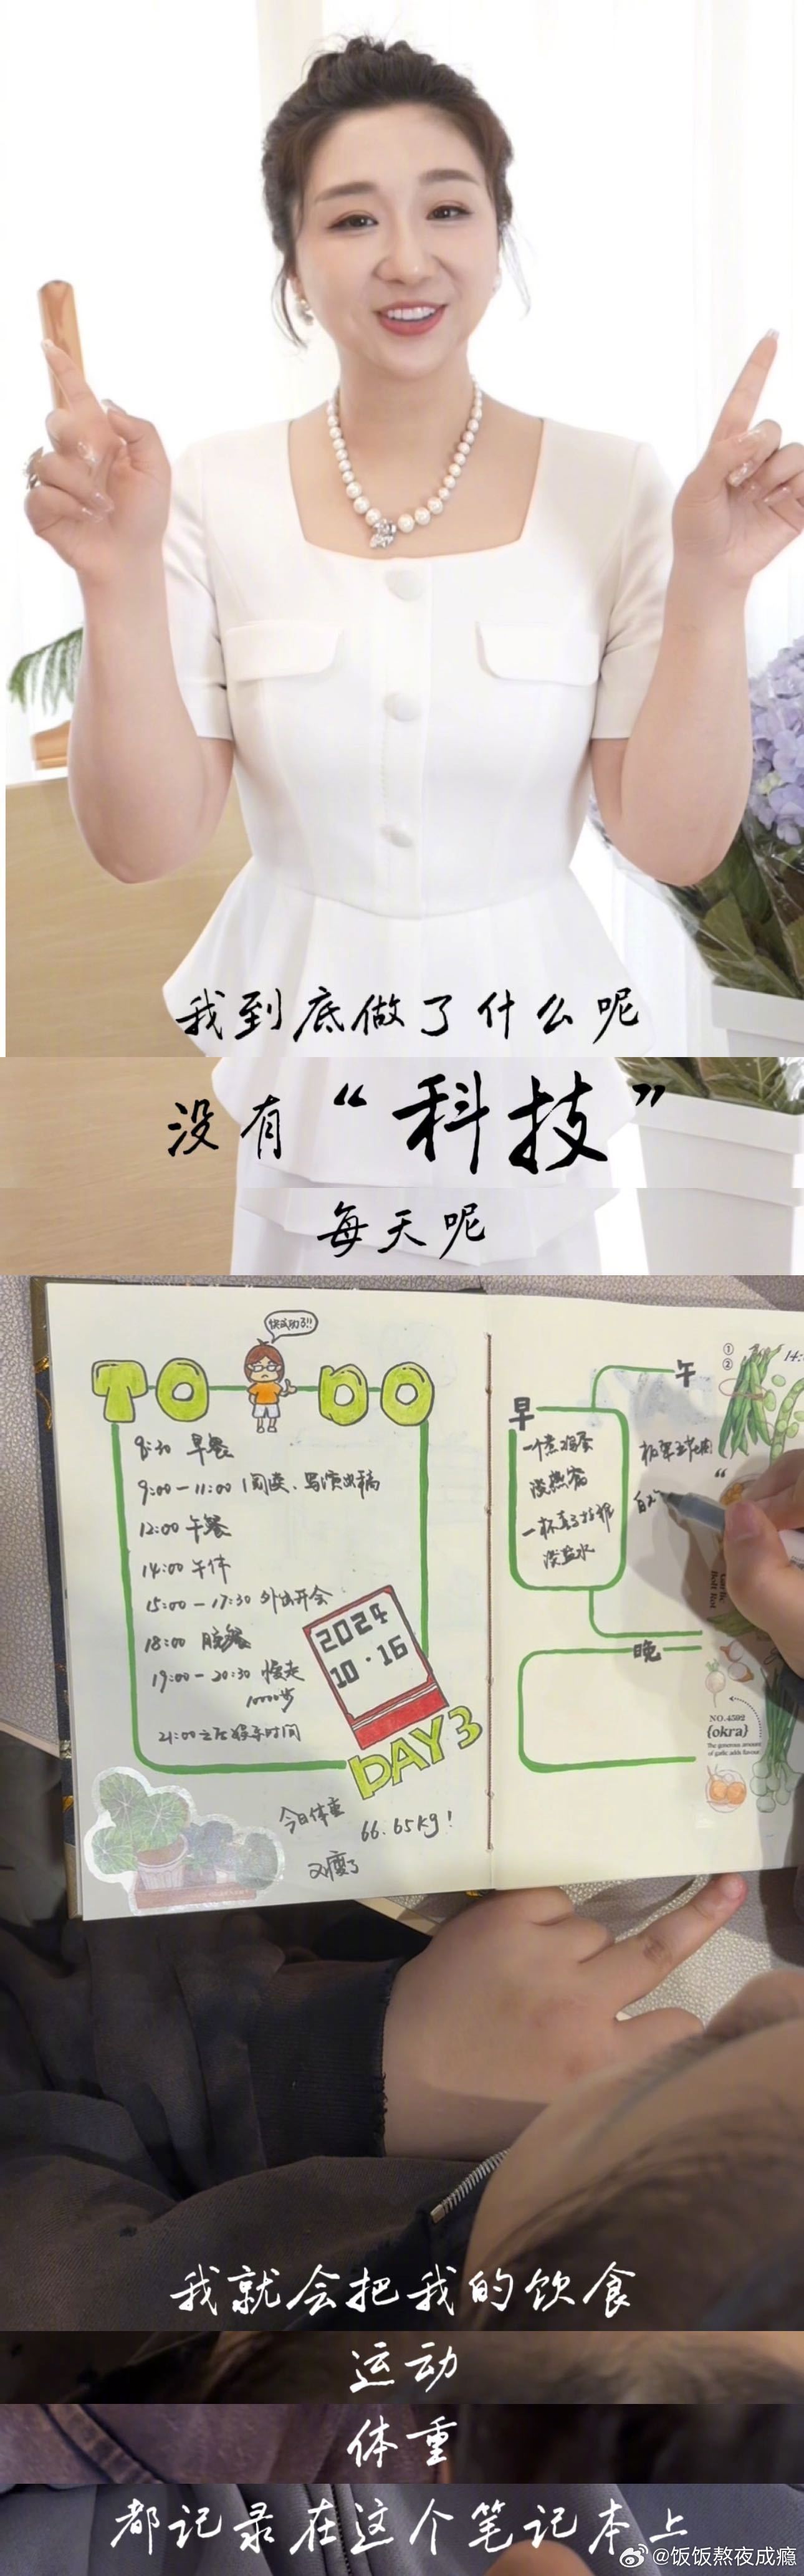 我到底做了什么呢
没有“科技”
每天呢
快成功了!!
TO DO
8:30 早餐
9:00-11:00 阅读、写演出稿
12:00 午餐
14:00 午休
15:00-17:30 外出开会
18:00 晚餐
19:00-20:30 慢走
10000步
21:00之后娱乐时间
2024
10·16
DAY 3
今日体重
66.65kg!
又瘦了
早
一个煮鸡蛋
淡燕窝
一杯
淡盐水
午
①
②
14:
晚
NO.4592
{okra}
The generous amount
of garlic adds flavour
我就会把我的饮食
运动
体重
都记录在这个笔记本上
@饭饭熬夜成瘾